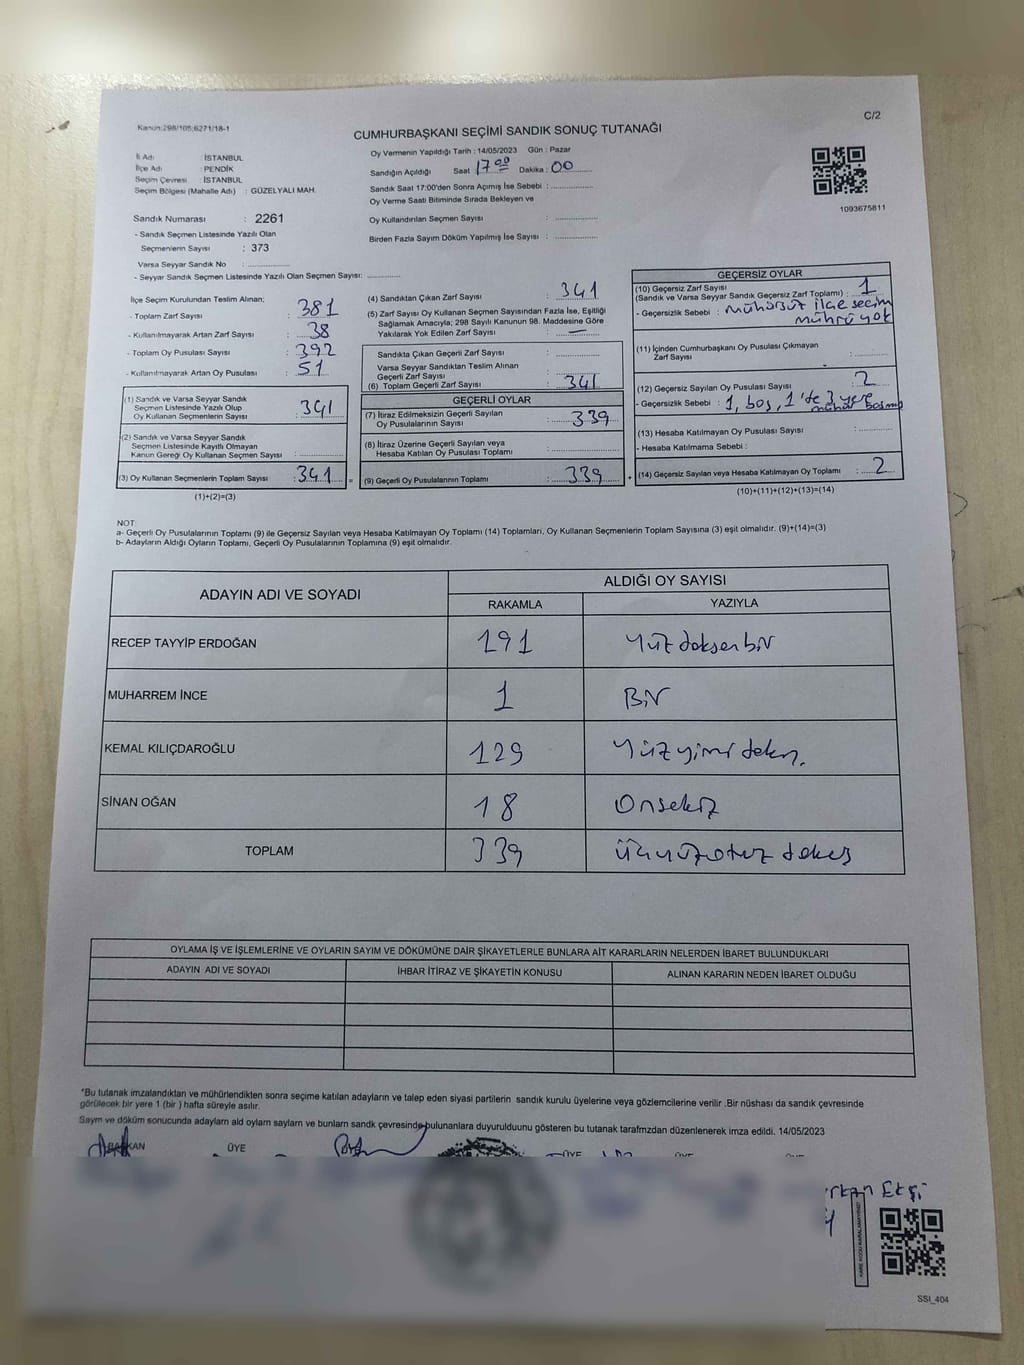 Kanun:298/105;6271/18-1
C/2
CUMHURBAŞKANI SEÇİMİ SANDIK SONUÇ TUTANAĞI
İl Adı : İSTANBUL
İlçe Adı : PENDİK
Seçim Çevresi : İSTANBUL
Seçim Bölgesi (Mahalle Adı) : GÜZELYALI MAH.
Oy Vermenin Yapıldığı Tarih : 14/05/2023 Gün : Pazar
Sandığın Açıldığı Saat 17 00 Dakika : 00
Sandık Saat 17:00'den Sonra Açımış İse Sebebi :
Oy Verme Saati Bitiminde Sırada Bekleyen ve
Oy Kullandırılan Seçmen Sayısı :
Birden Fazla Sayım Döküm Yapılmış İse Sayısı :
1093675811
Sandık Numarası : 2261
- Sandık Seçmen Listesinde Yazılı Olan
Seçmenlerin Sayısı : 373
Varsa Seyyar Sandık No :
- Seyyar Sandık Seçmen Listesinde Yazılı Olan Seçmen Sayısı:
İlçe Seçim Kurulundan Teslim Alınan;
- Toplam Zarf Sayısı : 381
- Kullanılmayarak Artan Zarf Sayısı : 38
- Toplam Oy Pusulası Sayısı : 392
- Kullanılmayarak Artan Oy Pusulası : 51
(1) Sandık ve Varsa Seyyar Sandık
Seçmen Listesinde Yazılı Olup
Oy Kullanan Seçmenlerin Sayısı : 341
(2) Sandık ve Varsa Seyyar Sandık
Seçmen Listesinde Kayıtlı Olmayan
Kanun Gereği Oy Kullanan Seçmen Sayısı :
(3) Oy Kullanan Seçmenlerin Toplam Sayısı : 341
(1)+(2)=(3)
=
(4) Sandıktan Çıkan Zarf Sayısı : 341
(5) Zarf Sayısı Oy Kullanan Seçmen Sayısından Fazla İse, Eşitliği
Sağlamak Amacıyla; 298 Sayılı Kanunun 98. Maddesine Göre
Yakılarak Yok Edilen Zarf Sayısı : —
Sandıkta Çıkan Geçerli Zarf Sayısı :
Varsa Seyyar Sandıktan Teslim Alınan
Geçerli Zarf Sayısı :
(6) Toplam Geçerli Zarf Sayısı : 341
GEÇERLİ OYLAR
(7) İtiraz Edilmeksizin Geçerli Sayılan
Oy Pusulalarının Sayısı : 339
(8) İtiraz Üzerine Geçerli Sayılan veya
Hesaba Katılan Oy Pusulası Toplamı :
(9) Geçerli Oy Pusulalarının Toplamı : 339
+
GEÇERSİZ OYLAR
(10) Geçersiz Zarf Sayısı
(Sandık ve Varsa Seyyar Sandık Geçersiz Zarf Toplamı) : 1
- Geçersizlik Sebebi : mühürsüz ilçe seçim
mührü yok
(11) İçinden Cumhurbaşkanı Oy Pusulası Çıkmayan
Zarf Sayısı :
(12) Geçersiz Sayılan Oy Pusulası Sayısı : 2
- Geçersizlik Sebebi : 1, boş, 1'de 3 yere
mühür basmış
(13) Hesaba Katılmayan Oy Pusulası Sayısı :
- Hesaba Katılmama Sebebi :
(14) Geçersiz Sayılan veya Hesaba Katılmayan Oy Toplamı : 2
(10)+(11)+(12)+(13)=(14)
NOT:
a- Geçerli Oy Pusulalarının Toplamı (9) ile Geçersiz Sayılan veya Hesaba Katılmayan Oy Toplamı (14) Toplamları, Oy Kullanan Seçmenlerin Toplam Sayısına (3) eşit olmalıdır. (9)+(14)=(3)
b- Adayların Aldığı Oyların Toplamı, Geçerli Oy Pusulalarının Toplamına (9) eşit olmalıdır.
ADAYIN ADI VE SOYADI
ALDIĞI OY SAYISI
RAKAMLA YAZIYLA
RECEP TAYYİP ERDOĞAN 191 Yüz doksan bir
MUHARREM İNCE 1 Bir
KEMAL KILIÇDAROĞLU 129 Yüz yirmi dokuz
SİNAN OĞAN 18 Onsekiz
TOPLAM 339 Üçyüzotuz dokuz
OYLAMA İŞ VE İŞLEMLERİNE VE OYLARIN SAYIM VE DÖKÜMÜNE DAİR ŞİKAYETLERLE BUNLARA AİT KARARLARIN NELERDEN İBARET BULUNDUKLARI
ADAYIN ADI VE SOYADI İHBAR İTİRAZ VE ŞİKAYETİN KONUSU ALINAN KARARIN NEDEN İBARET OLDUĞU
*Bu tutanak imzalandıktan ve mühürlendikten sonra seçime katılan adayların ve talep eden siyasi partilerin sandık kurulu üyelerine veya gözlemcilerine verilir .Bir nüshası da sandık çevresinde
görülecek bir yere 1 (bir ) hafta süreyle asılır.
Sayım ve döküm sonucunda adayların ald oylam sayların ve bunların sandk çevresinde bulunanlara duyurulduunu gösteren bu tutanak tarafmzdan düzenlenerek imza edildi. 14/05/2023
BAŞKAN ÜYE ÜYE
Ekşi
SSI_404